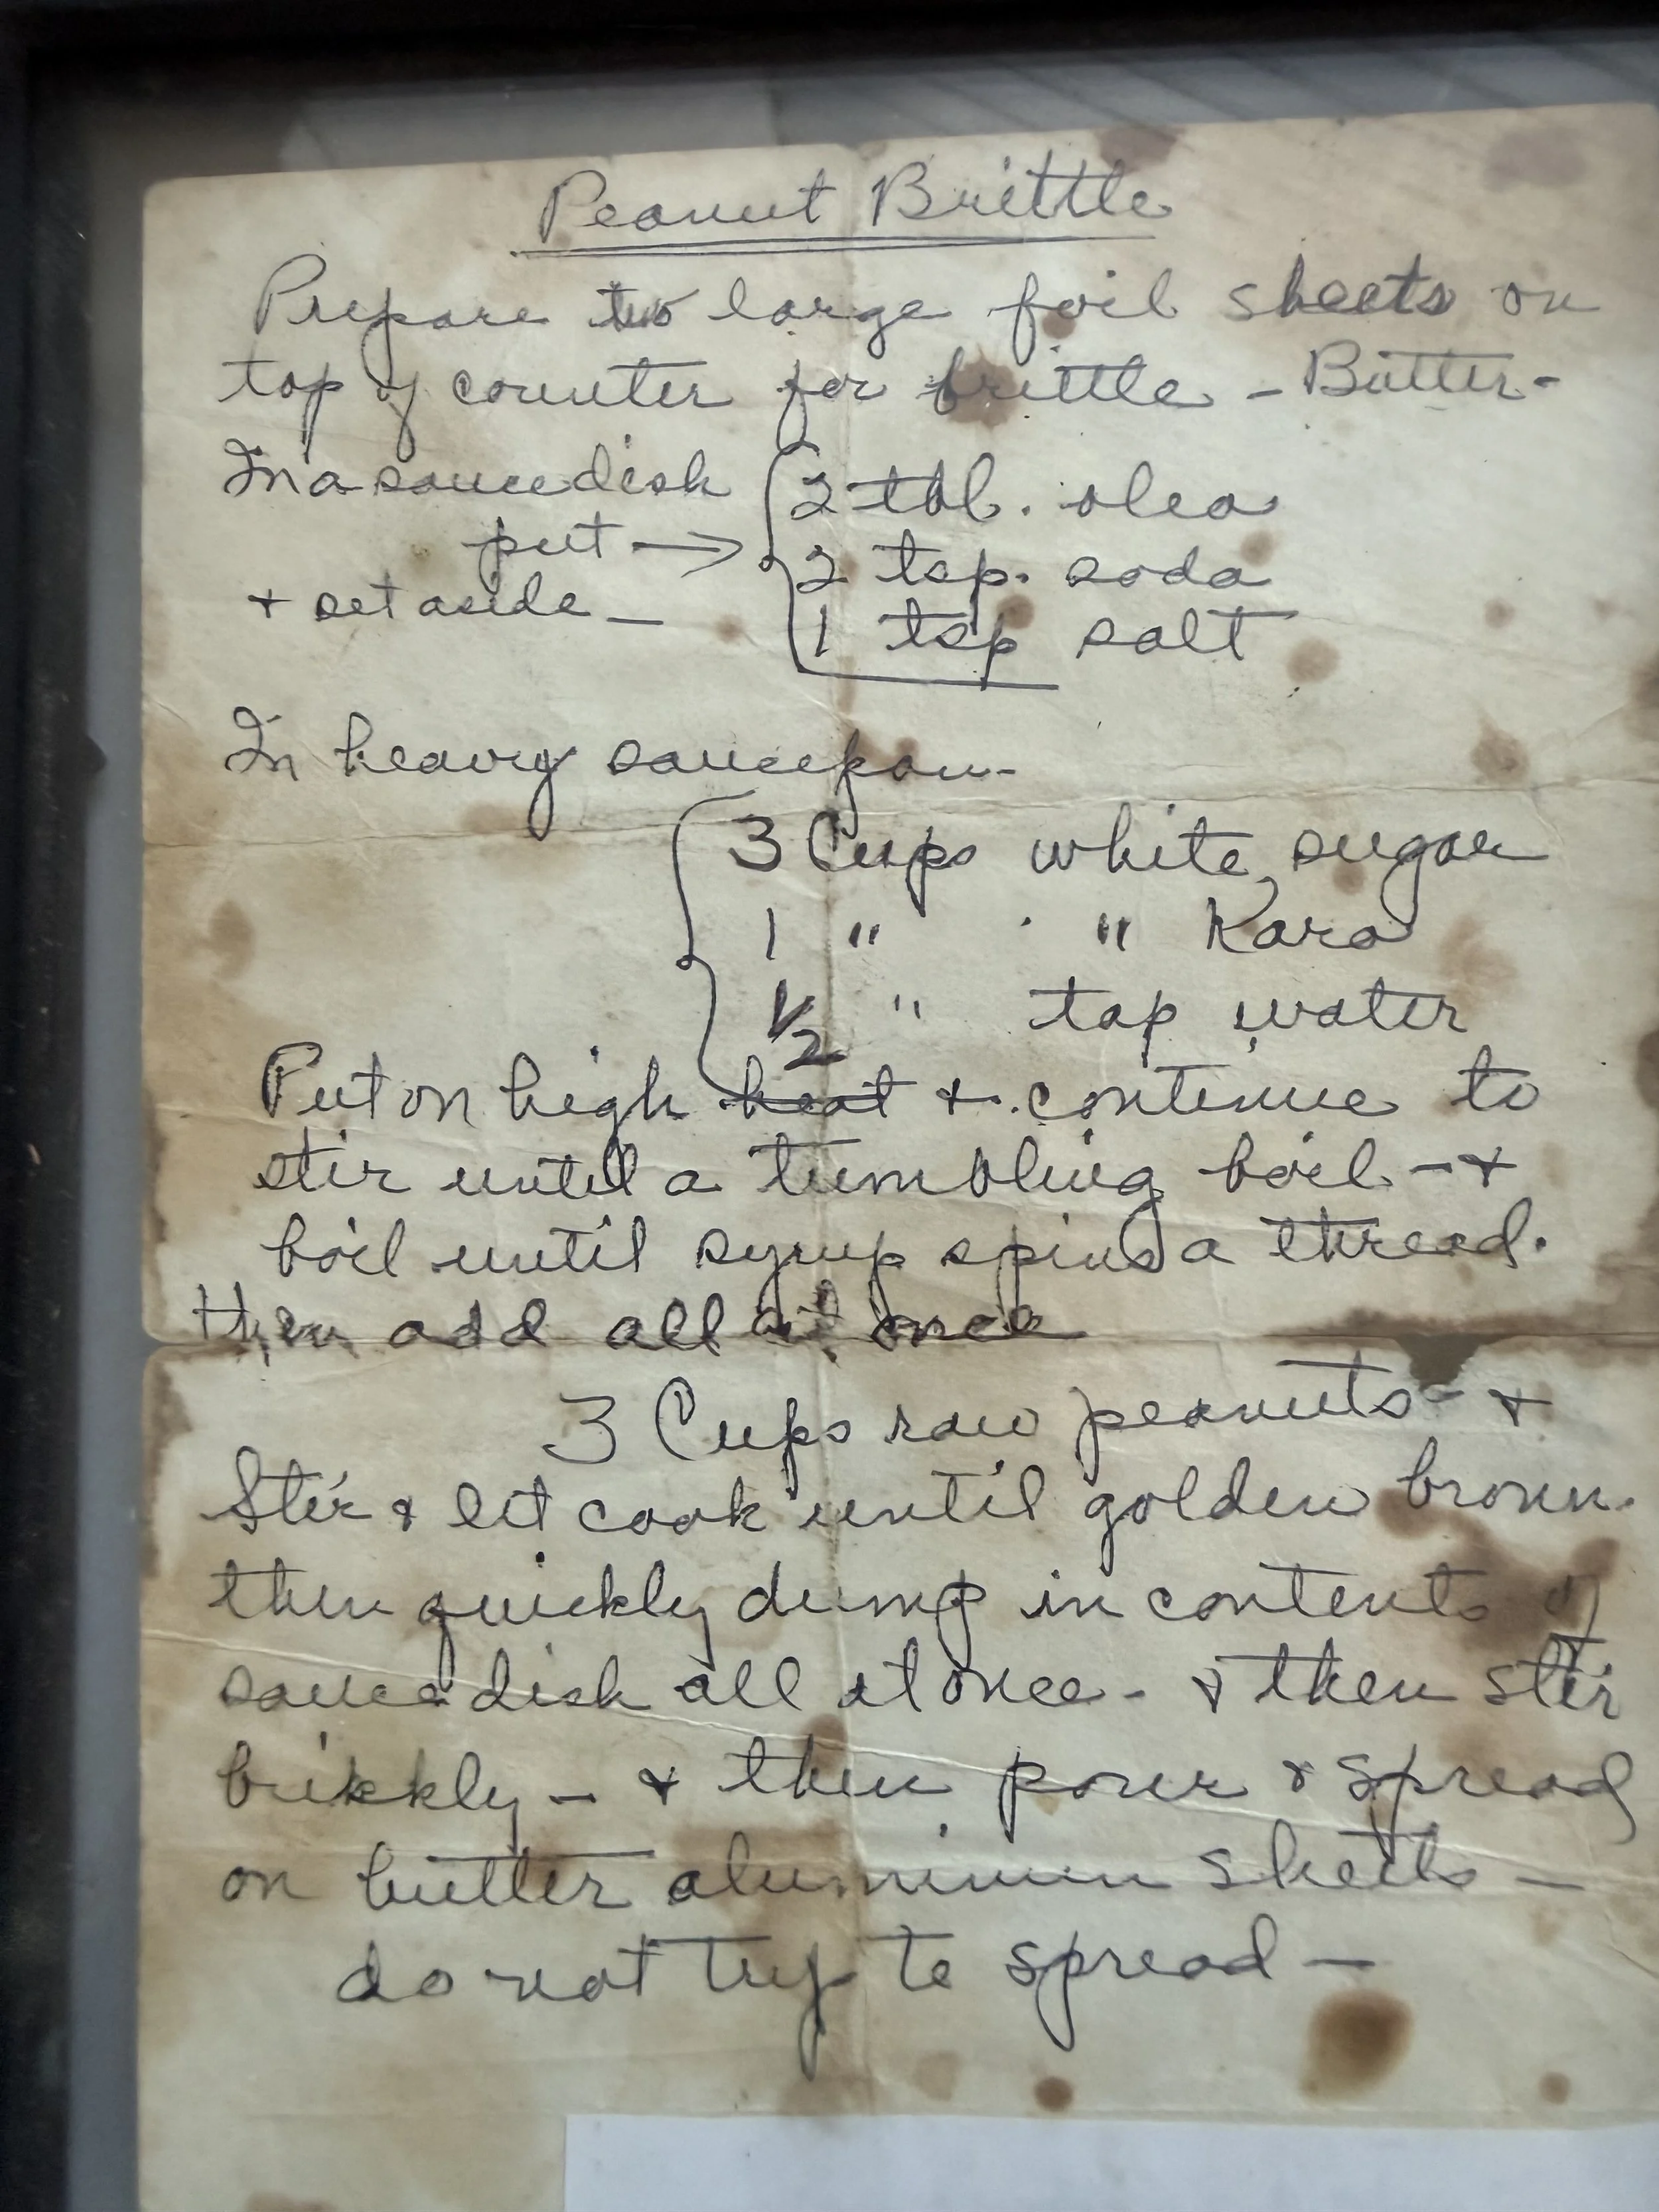 Peanut Brittle
Prepare two large foil sheets on
top of counter for brittle - Butter -
In a sauce dish
put →
+ set aside -
2 tbl. oleo
2 tsp. soda
1 tsp salt
In heavy saucepan -
3 Cups white sugar
1 " " Karo
1/2 " tap water
Put on high heat + continue to
stir until a tumbling boil - +
boil until syrup spins a thread.
then add all at once
3 Cups raw peanuts - +
Stir & let cook until golden brown.
then quickly dump in contents of
sauce dish all at once - & then stir
brikkly - & then pour & spread
on butter aluminum sheets -
do not try to spread -